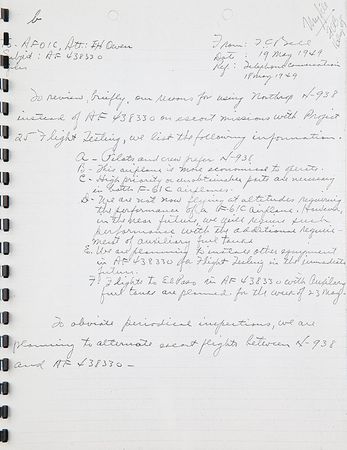 b
- AFOIC, Att: EH Owen
From: F C Bell
Subject: AF 438330
Date 19 May 1949
Ref: Telephone conversation
18 May 1949
To review, briefly, our reasons for using Northrop N-938
instead of AF 438330 on escort missions with Project
25 Flight Testing, we list the following information.
A - Pilots and crew prefer N-938
B - This airplane is more economical to operate.
C - High priority or unobtainable parts are necessary
in both F-61C airplanes.
D - We are not now flying at altitudes requiring
the performance of a F-61C airplane. However,
in the near future, we will require such
performance with the additional require-
ment of auxiliary fuel tanks
E. We are planning to install other equipment
in AF 438330 for Flight Testing in the immediate
future.
F. Flights to El Paso in AF 438330 with Auxiliary
fuel tanks are planned for the week of 23 May.
To obviate periodical inspections, we are
planning to alternate escort flights between N-938
and AF 438330 -